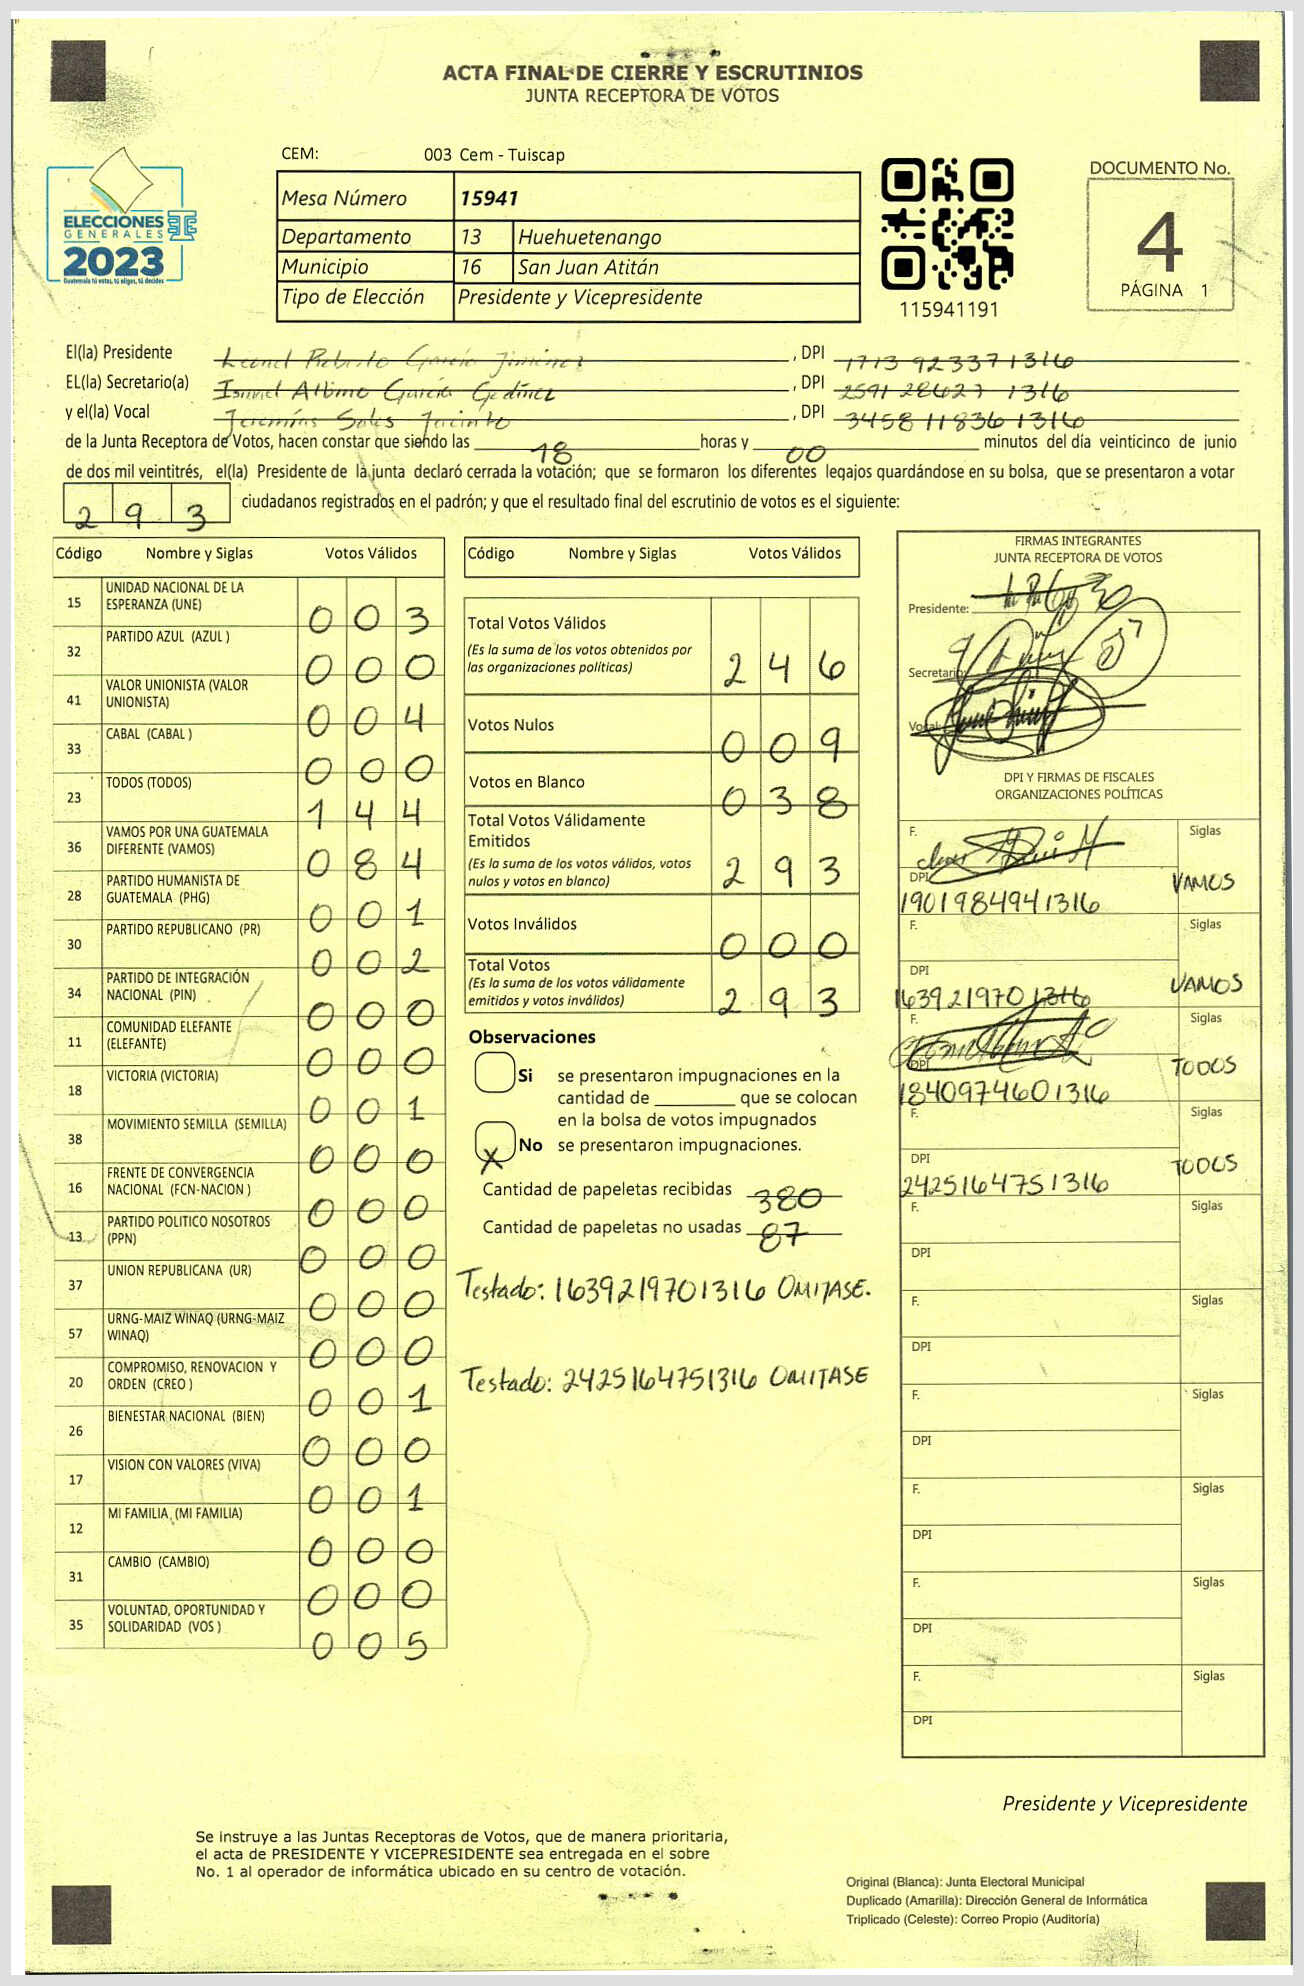 ACTA FINAL DE CIERRE Y ESCRUTINIOS
JUNTA RECEPTORA DE VOTOS
CEM: 003 Cem - Tuiscap
Mesa Número 15941
Departamento 13 Huehuetenango
Municipio 16 San Juan Atitán
Tipo de Elección Presidente y Vicepresidente
ELECCIONES
GENERALES
2023
Guatemala tú votas, tú eliges, tú decides
115941191
DOCUMENTO No.
4
PÁGINA 1
El(la) Presidente Leonel Roberto García Jiménez , DPI 1713 92337 1316
EL(la) Secretario(a) Ismael Albino García Godínez , DPI 2591 28627 1316
y el(la) Vocal Jeremías Sales Jacinto , DPI 3458 11836 1316
de la Junta Receptora de Votos, hacen constar que siendo las 18 horas y 00 minutos del día veinticinco de junio
de dos mil veintitrés, el(la) Presidente de la junta declaró cerrada la votación; que se formaron los diferentes legajos quardándose en su bolsa, que se presentaron a votar
293 ciudadanos registrados en el padrón; y que el resultado final del escrutinio de votos es el siguiente:
Código Nombre y Siglas Votos Válidos
15 UNIDAD NACIONAL DE LA
ESPERANZA (UNE) 0 0 3
32 PARTIDO AZUL (AZUL ) 0 0 0
41 VALOR UNIONISTA (VALOR
UNIONISTA) 0 0 4
33 CABAL (CABAL ) 0 0 0
23 TODOS (TODOS) 1 4 4
36 VAMOS POR UNA GUATEMALA
DIFERENTE (VAMOS) 0 8 4
28 PARTIDO HUMANISTA DE
GUATEMALA (PHG) 0 0 1
30 PARTIDO REPUBLICANO (PR) 0 0 2
34 PARTIDO DE INTEGRACIÓN
NACIONAL (PIN) 0 0 0
11 COMUNIDAD ELEFANTE
(ELEFANTE) 0 0 0
18 VICTORIA (VICTORIA) 0 0 1
38 MOVIMIENTO SEMILLA (SEMILLA) 0 0 0
16 FRENTE DE CONVERGENCIA
NACIONAL (FCN-NACION ) 0 0 0
13 PARTIDO POLITICO NOSOTROS
(PPN) 0 0 0
37 UNION REPUBLICANA (UR) 0 0 0
57 URNG-MAIZ WINAQ (URNG-MAIZ
WINAQ) 0 0 0
20 COMPROMISO, RENOVACION Y
ORDEN (CREO ) 0 0 1
26 BIENESTAR NACIONAL (BIEN) 0 0 0
17 VISION CON VALORES (VIVA) 0 0 1
12 MI FAMILIA (MI FAMILIA) 0 0 0
31 CAMBIO (CAMBIO) 0 0 0
35 VOLUNTAD, OPORTUNIDAD Y
SOLIDARIDAD (VOS ) 0 0 5
Código Nombre y Siglas Votos Válidos
Total Votos Válidos
(Es la suma de los votos obtenidos por
las organizaciones políticas) 2 4 6
Votos Nulos 0 0 9
Votos en Blanco 0 3 8
Total Votos Válidamente
Emitidos
(Es la suma de los votos válidos, votos
nulos y votos en blanco) 2 9 3
Votos Inválidos 0 0 0
Total Votos
(Es la suma de los votos válidamente
emitidos y votos inválidos) 2 9 3
Observaciones
Si se presentaron impugnaciones en la
cantidad de ________ que se colocan
en la bolsa de votos impugnados
X No se presentaron impugnaciones.
Cantidad de papeletas recibidas 380
Cantidad de papeletas no usadas 87
Testado: 1639219701316 OMITASE.
Testado: 2425164751316 OMITASE
FIRMAS INTEGRANTES
JUNTA RECEPTORA DE VOTOS
Presidente:
Secretario:
Vocal:
DPI Y FIRMAS DE FISCALES
ORGANIZACIONES POLÍTICAS
F. Siglas
DPI VAMOS
1901984941316
F. Siglas
DPI VAMOS
1639219701316
F. Siglas
DPI TODOS
1840974601316
F. Siglas
DPI TODOS
2425164751316
F. Siglas
DPI
F. Siglas
DPI
F. Siglas
DPI
F. Siglas
DPI
F. Siglas
DPI
F. Siglas
DPI
Presidente y Vicepresidente
Se instruye a las Juntas Receptoras de Votos, que de manera prioritaria,
el acta de PRESIDENTE Y VICEPRESIDENTE sea entregada en el sobre
No. 1 al operador de informática ubicado en su centro de votación.
Original (Blanca): Junta Electoral Municipal
Duplicado (Amarilla): Dirección General de Informática
Triplicado (Celeste): Correo Propio (Auditoría)